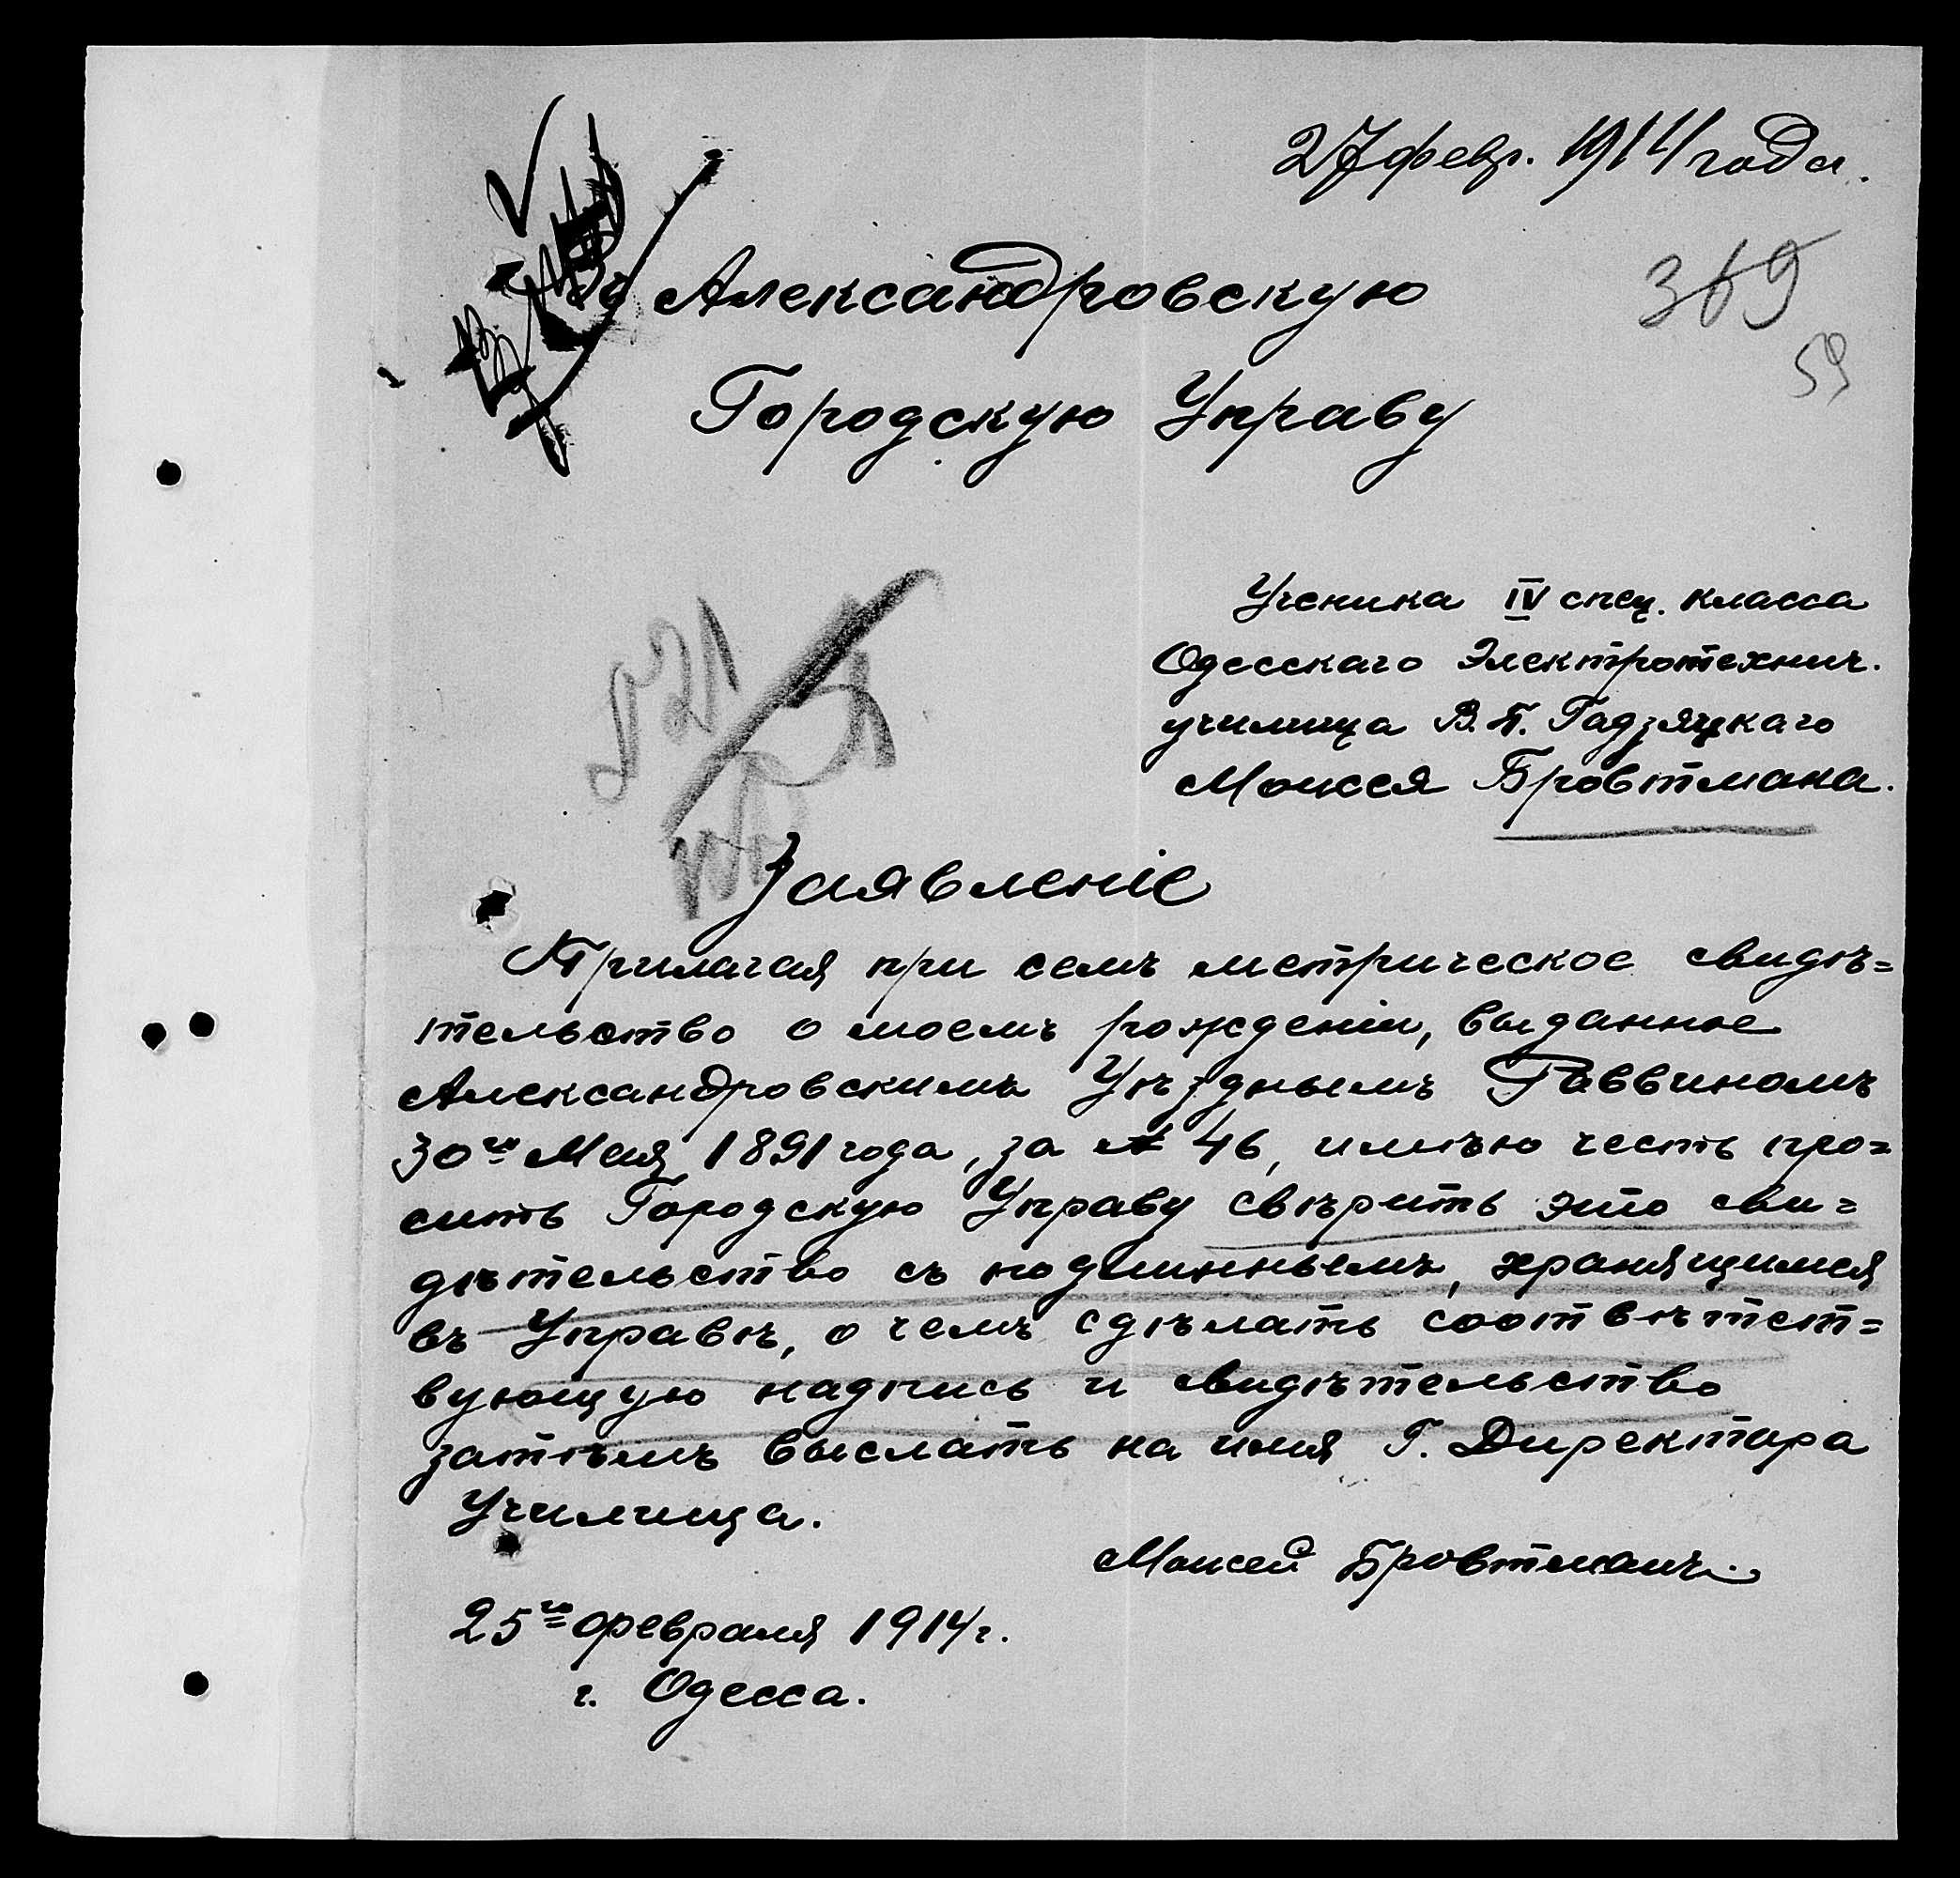 27 февр. 1914 года.
369
59
Александровскую
Городскую Управу
Ученика IV спец. класса
Одесскаго Электротехнич.
училища В. П. Гадзяцкаго
Моисея Бровтмана.
Заявленіе
Прилагая при семъ метрическое свидѣ=
тельство о моемъ рожденіи, выданное
Александровскимъ Уѣзднымъ Раввиномъ
30го Мая 1891 года, за № 46, имѣю честь про=
сить Городскую Управу свѣрить это сви=
дѣтельство съ подлиннымъ, хранящимся
въ Управѣ, о чемъ сдѣлать соотвѣтст=
вующую надпись и свидѣтельство
затѣмъ выслать на имя Г. Директора
Училища.
Моисей Бровтманъ.
25го февраля 1914 г.
г. Одесса.